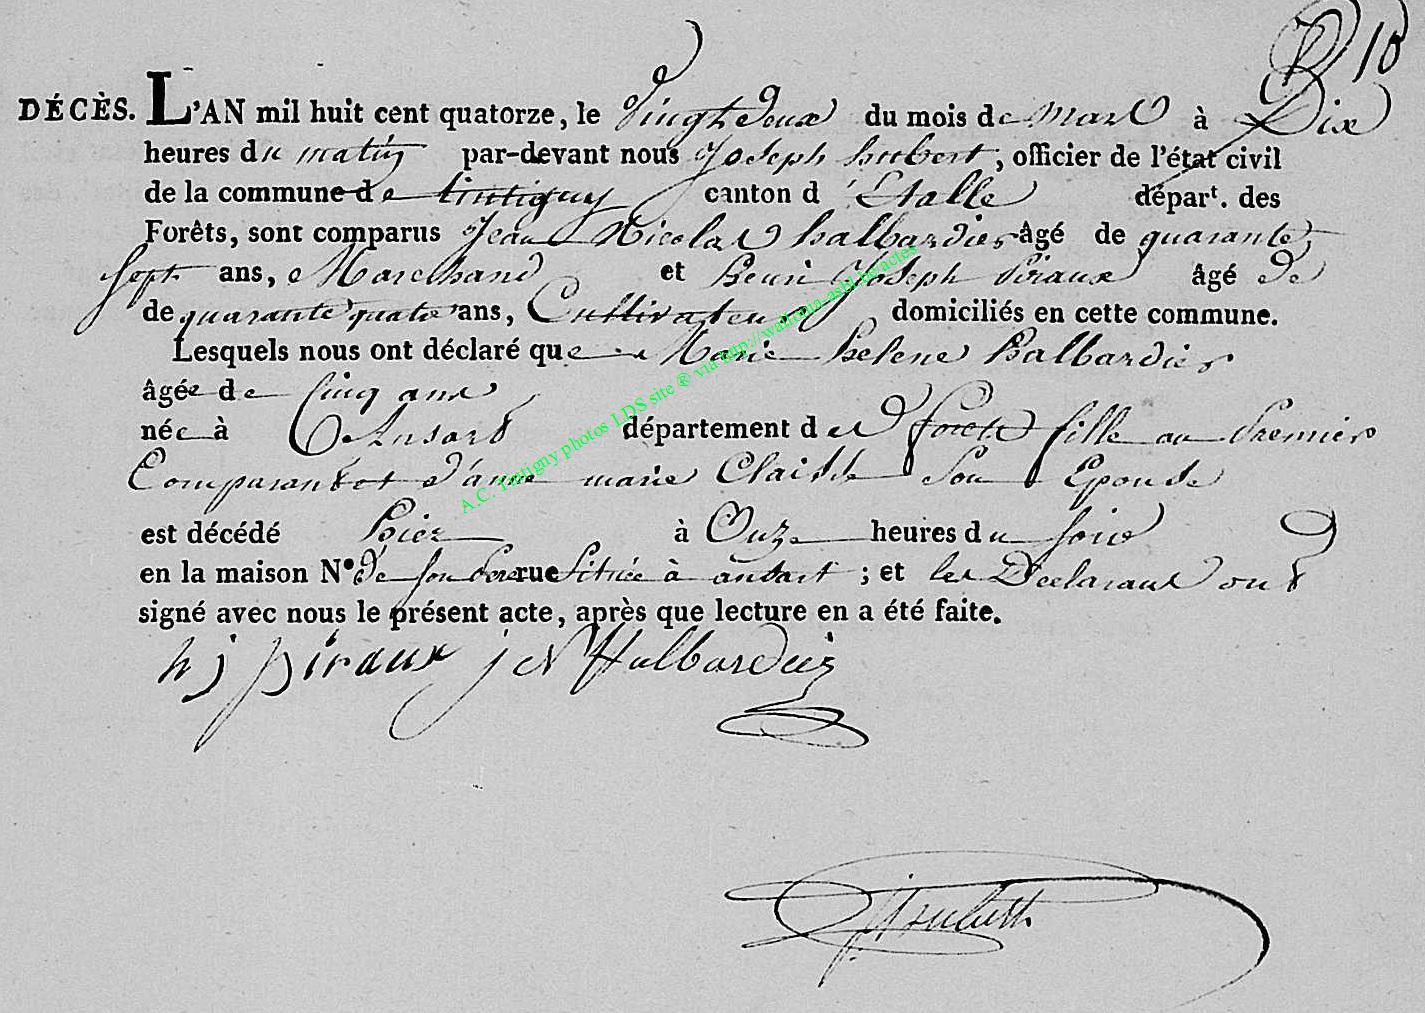 10
DÉCÈS. L'AN mil huit cent quatorze, le Vingt Deux du mois de Mars à Dix
heures du matin par-devant nous Joseph hubert, officier de l'état civil
de la commune de tintigny canton d'Etalle départ. des
Forêts, sont comparus Jean Nicolas halbardier âgé de quarante
sept ans, Marchand et henri Joseph Piraux âgé de
de quarante quatre ans, Cultivateur domiciliés en cette commune.
Lesquels nous ont déclaré que Marie helene halbardier
âgée de Cinq ans
née à Ansart département des forets fille au Premier
Comparant et d'anne marie Son Epouse
est décédé hier à Onze heures du soir
en la maison N° de son Pere rue Située à ansart ; et les Declarans ont
signé avec nous le présent acte, après que lecture en a été faite.
h j piraux j N Halbardier
A.C. Tintigny photos LDS site ® via http://wallonia-asbl.be/actes